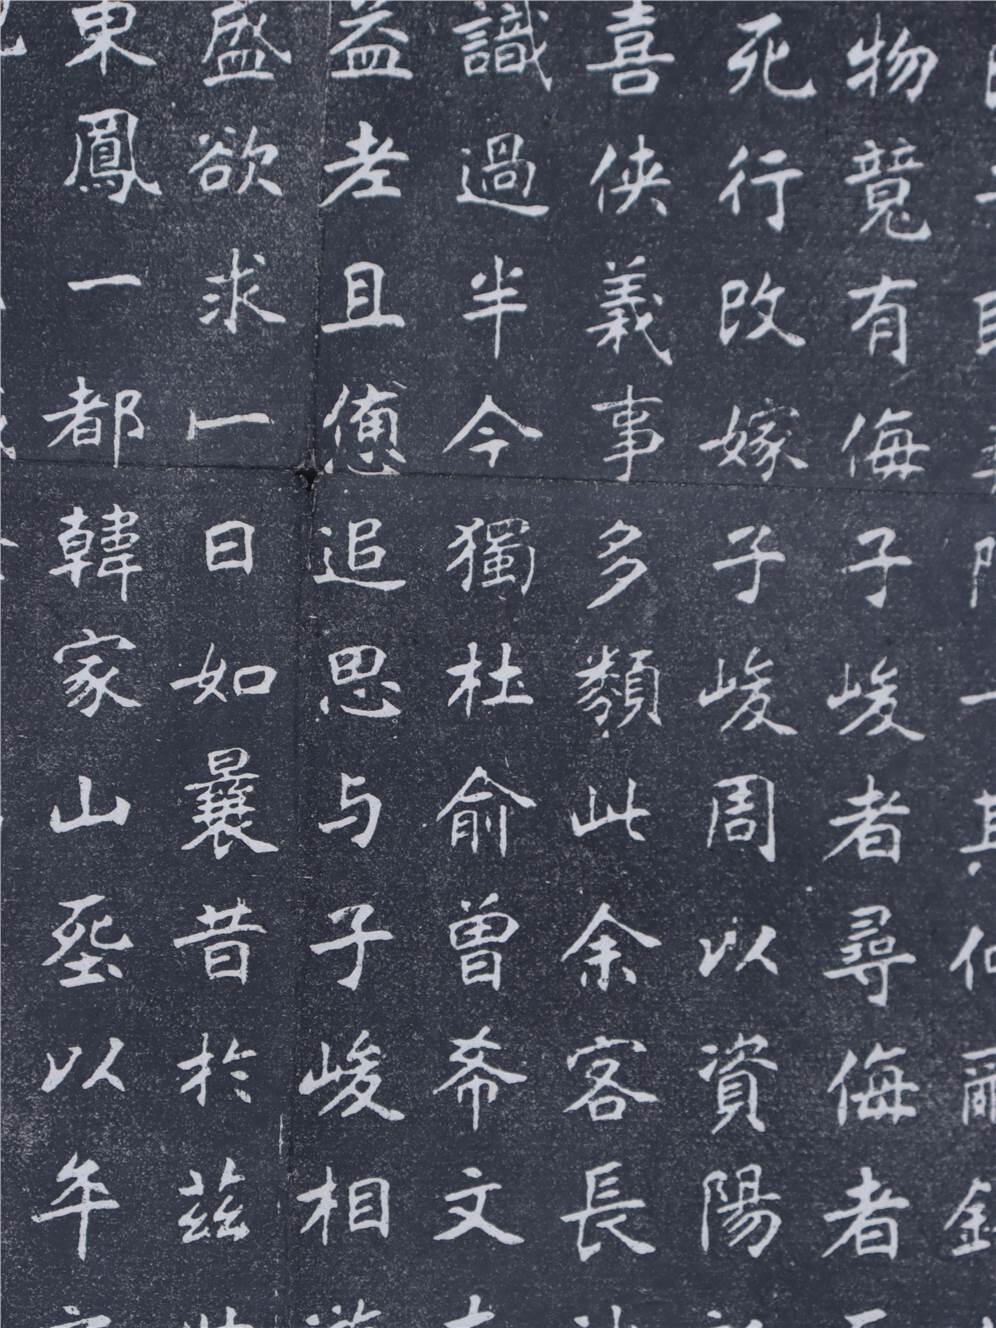 物競有侮子峻者尋侮者
死行改嫁子峻周以資陽
喜俠義事多類此余客長
識過半今獨杜俞曾希文
益老且憊追思与子峻相
盛欲求一日如曩昔於茲
東鳳一都韓家山巠以年